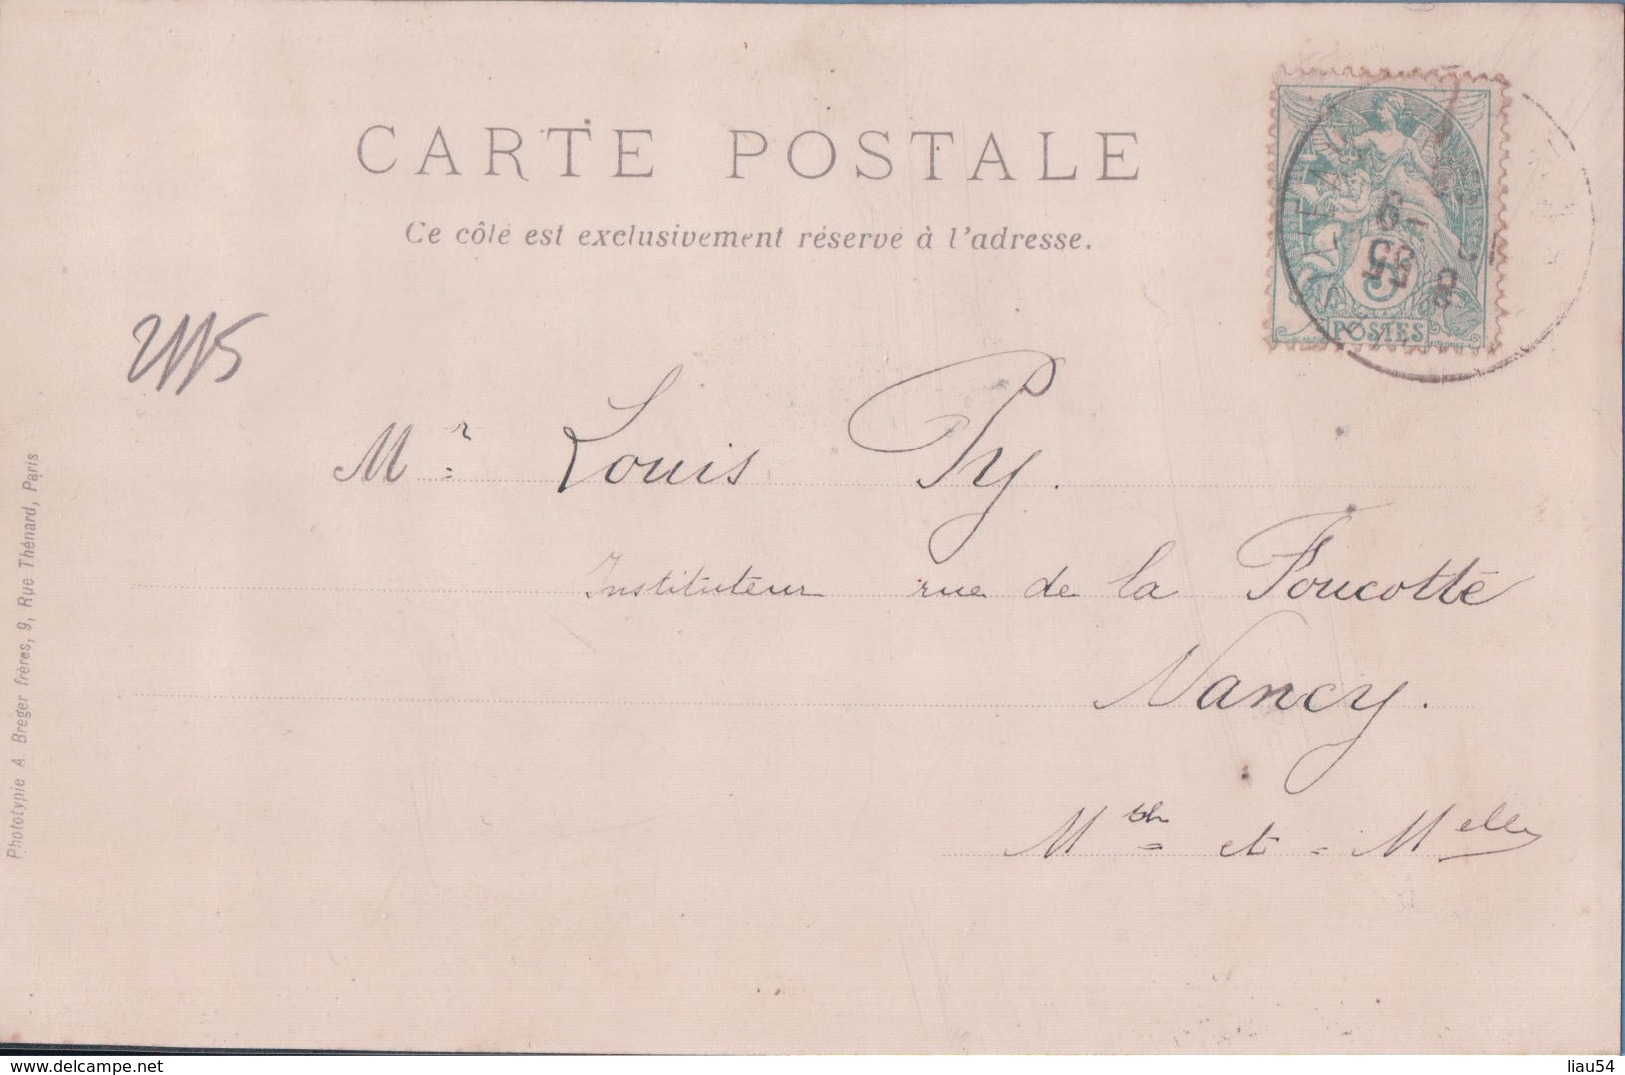 CARTE POSTALE
Ce côté est exclusivement réservé à l'adresse.
Mr Louis Py.
Instituteur rue de la Foucotte
Nancy.
Mth et Melle
POSTES
5
Phototypie A. Breger frères, 9, Rue Thénard, Paris
www.delcampe.net
liau54